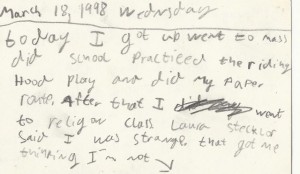 March 18, 1998 Wednesday
today I got up went to mass
did school Practiced the riding
Hood play and did my Paper
route. After that I went
to religon class Laura
said I was strange. that got me
thinking I'm not